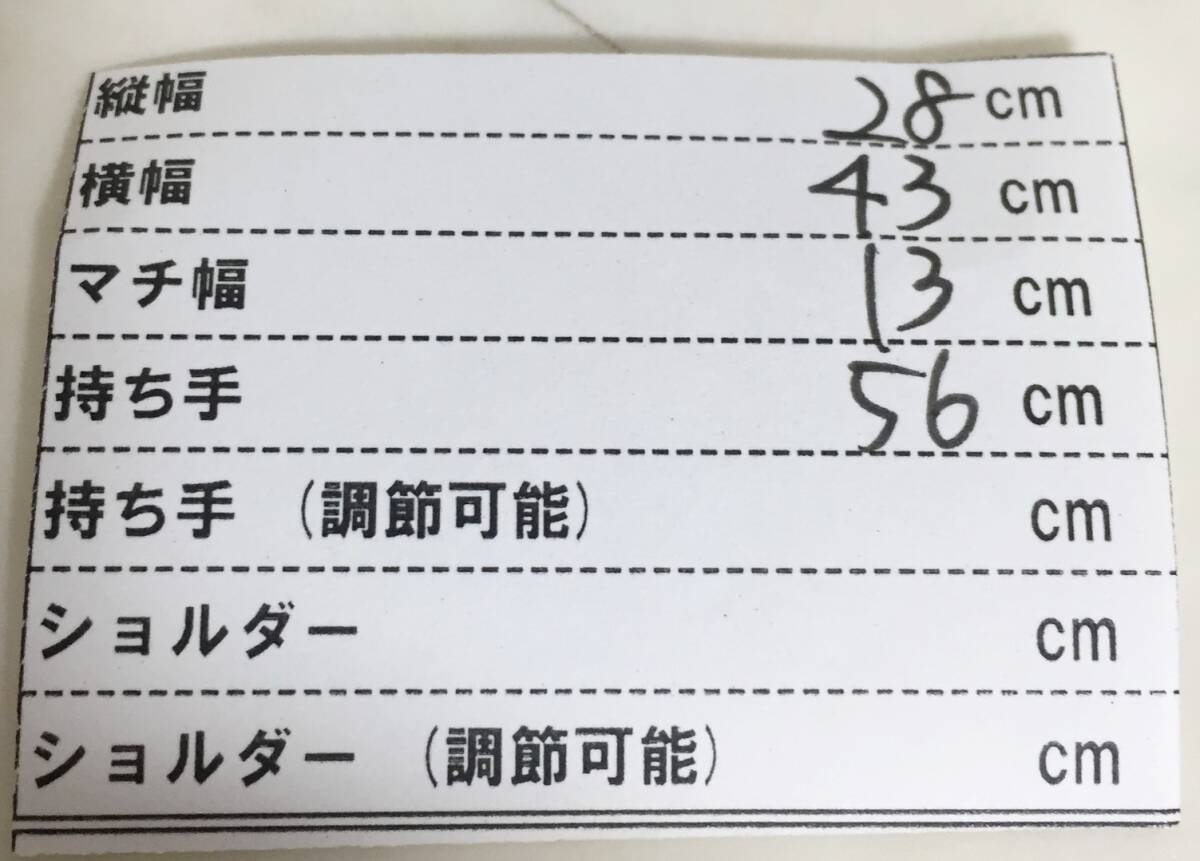 縦幅 28 cm
横幅 43 cm
マチ幅 13 cm
持ち手 56 cm
持ち手 (調節可能) cm
ショルダー cm
ショルダー (調節可能) cm